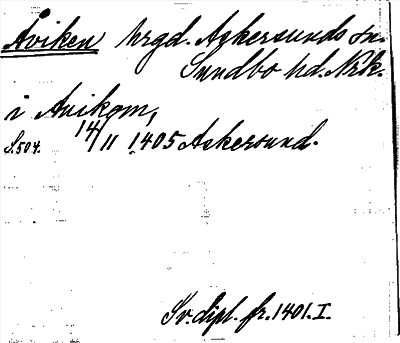 Åviken hrgd. Askersunds sn.
Sundbo hd. Nrk.
i Auikom,
S.504. 14/11 1405 Askersund.
Sv. dipl. fr. 1401. I.